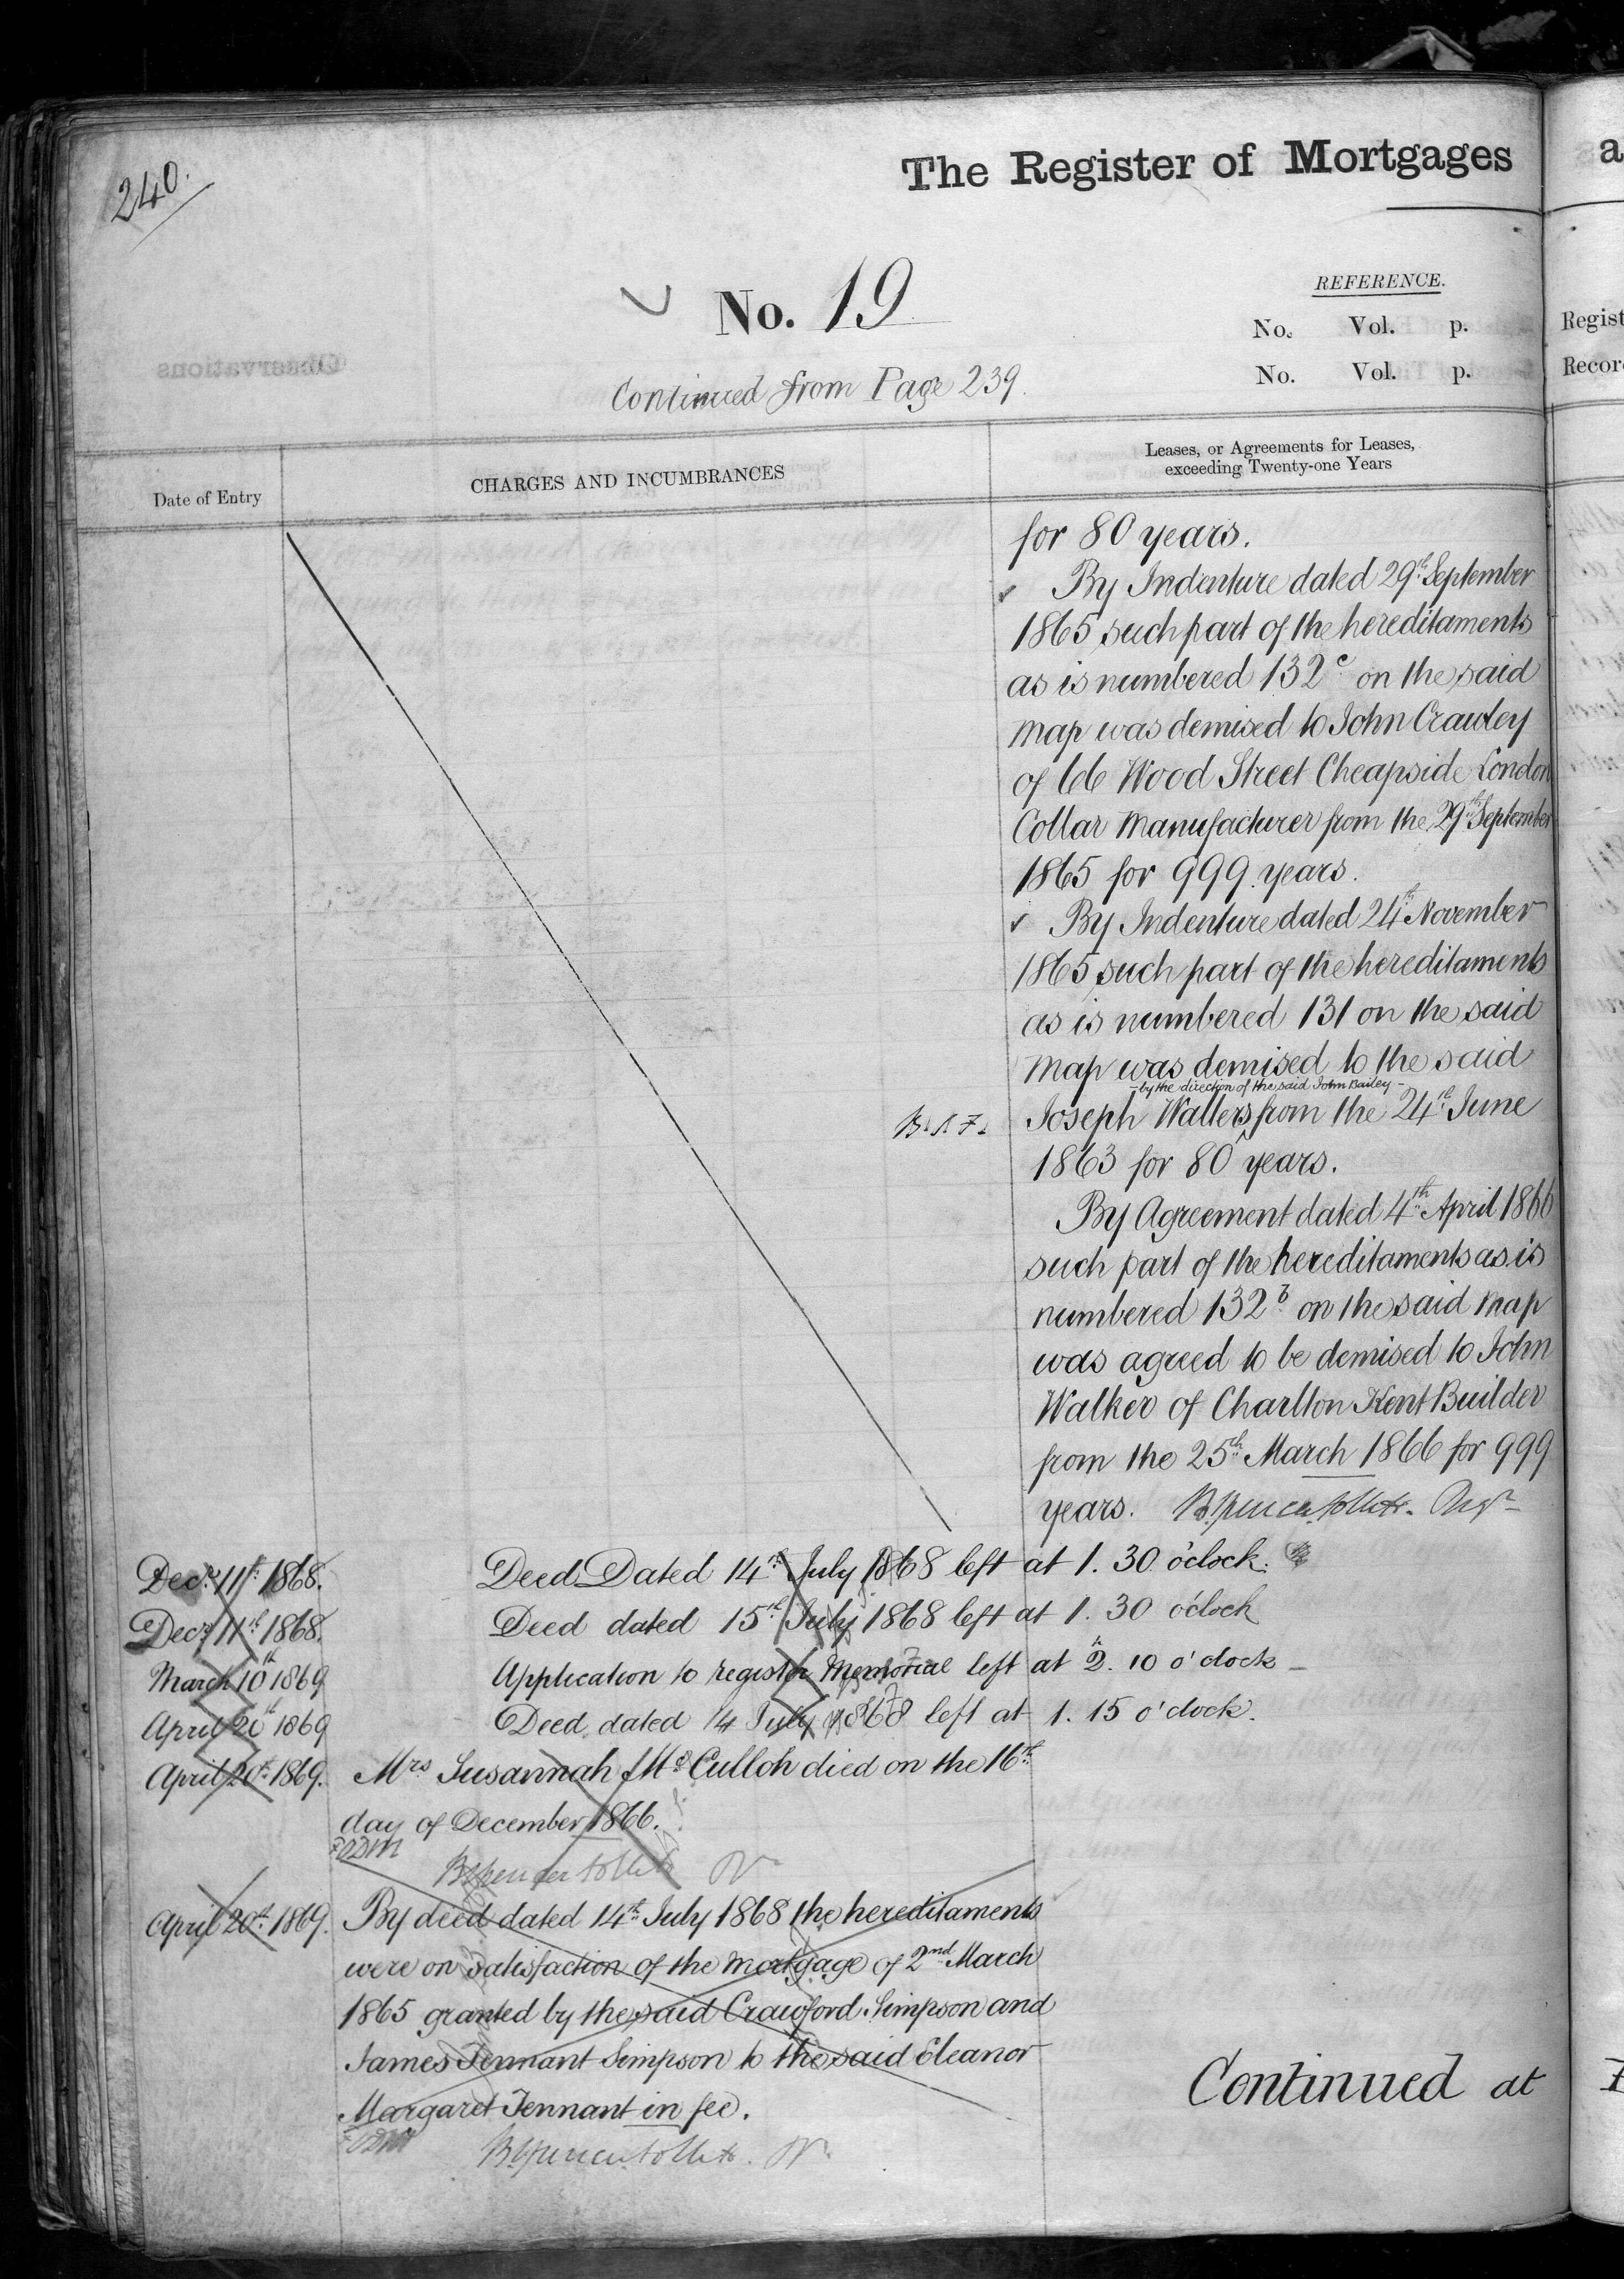 240.
The Register of Mortgages
a
No. 19
REFERENCE.
No. Vol. p.
No. Vol. p.
Regist
Recor
Continued from Page 239.
Date of Entry
CHARGES AND INCUMBRANCES
Leases, or Agreements for Leases,
exceeding Twenty-one Years
for 80 years.
By Indenture dated 29th September
1865 such part of the hereditaments
as is numbered 132c on the said
map was demised to John Crawley
of 66 Wood Street Cheapside London
Collar Manufacturer from the 29th September
1865 for 999 years.
By Indenture dated 24th November
1865 such part of the hereditaments
as is numbered 131 on the said
map was demised to the said
- by the direction of the said John Bailey -
Joseph Walters from the 24th June
1863 for 80 years.
By Agreement dated 4th April 1866
such part of the hereditaments as is
numbered 132b on the said map
was agreed to be demised to John
Walker of Charlton Kent Builder
from the 25th March 1866 for 999
years.
Decr. 11th 1868. Deed Dated 14th July 1868 left at 1. 30 o'clock.
Decr. 11th 1868. Deed dated 15th July 1868 left at 1. 30 o'clock
March 10th 1869 Application to register Memorial left at 2. 10 o'clock
April 20th 1869 Deed dated 14 July 1868 left at 1. 15 o'clock.
April 20th 1869. Mrs Susannah McCulloh died on the 16th
day of December 1866.
April 20th 1869. By deed dated 14th July 1868 the hereditaments
were on satisfaction of the mortgage of 2nd March
1865 granted by the said Crawford Simpson and
James Tennant Simpson to the said Eleanor
Margaret Tennant in fee.
Continued at